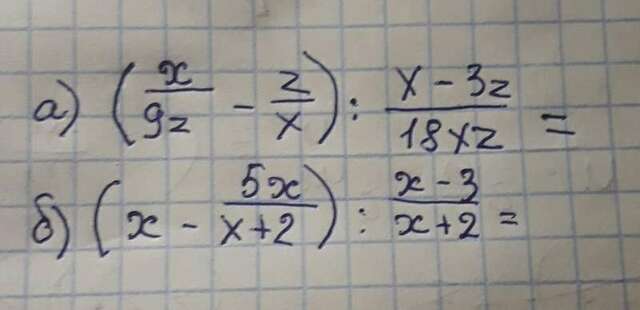 а) (x/9z - z/x) : (x - 3z)/(18xz) =
б) (x - 5x/(x+2)) : (x - 3)/(x+2) =